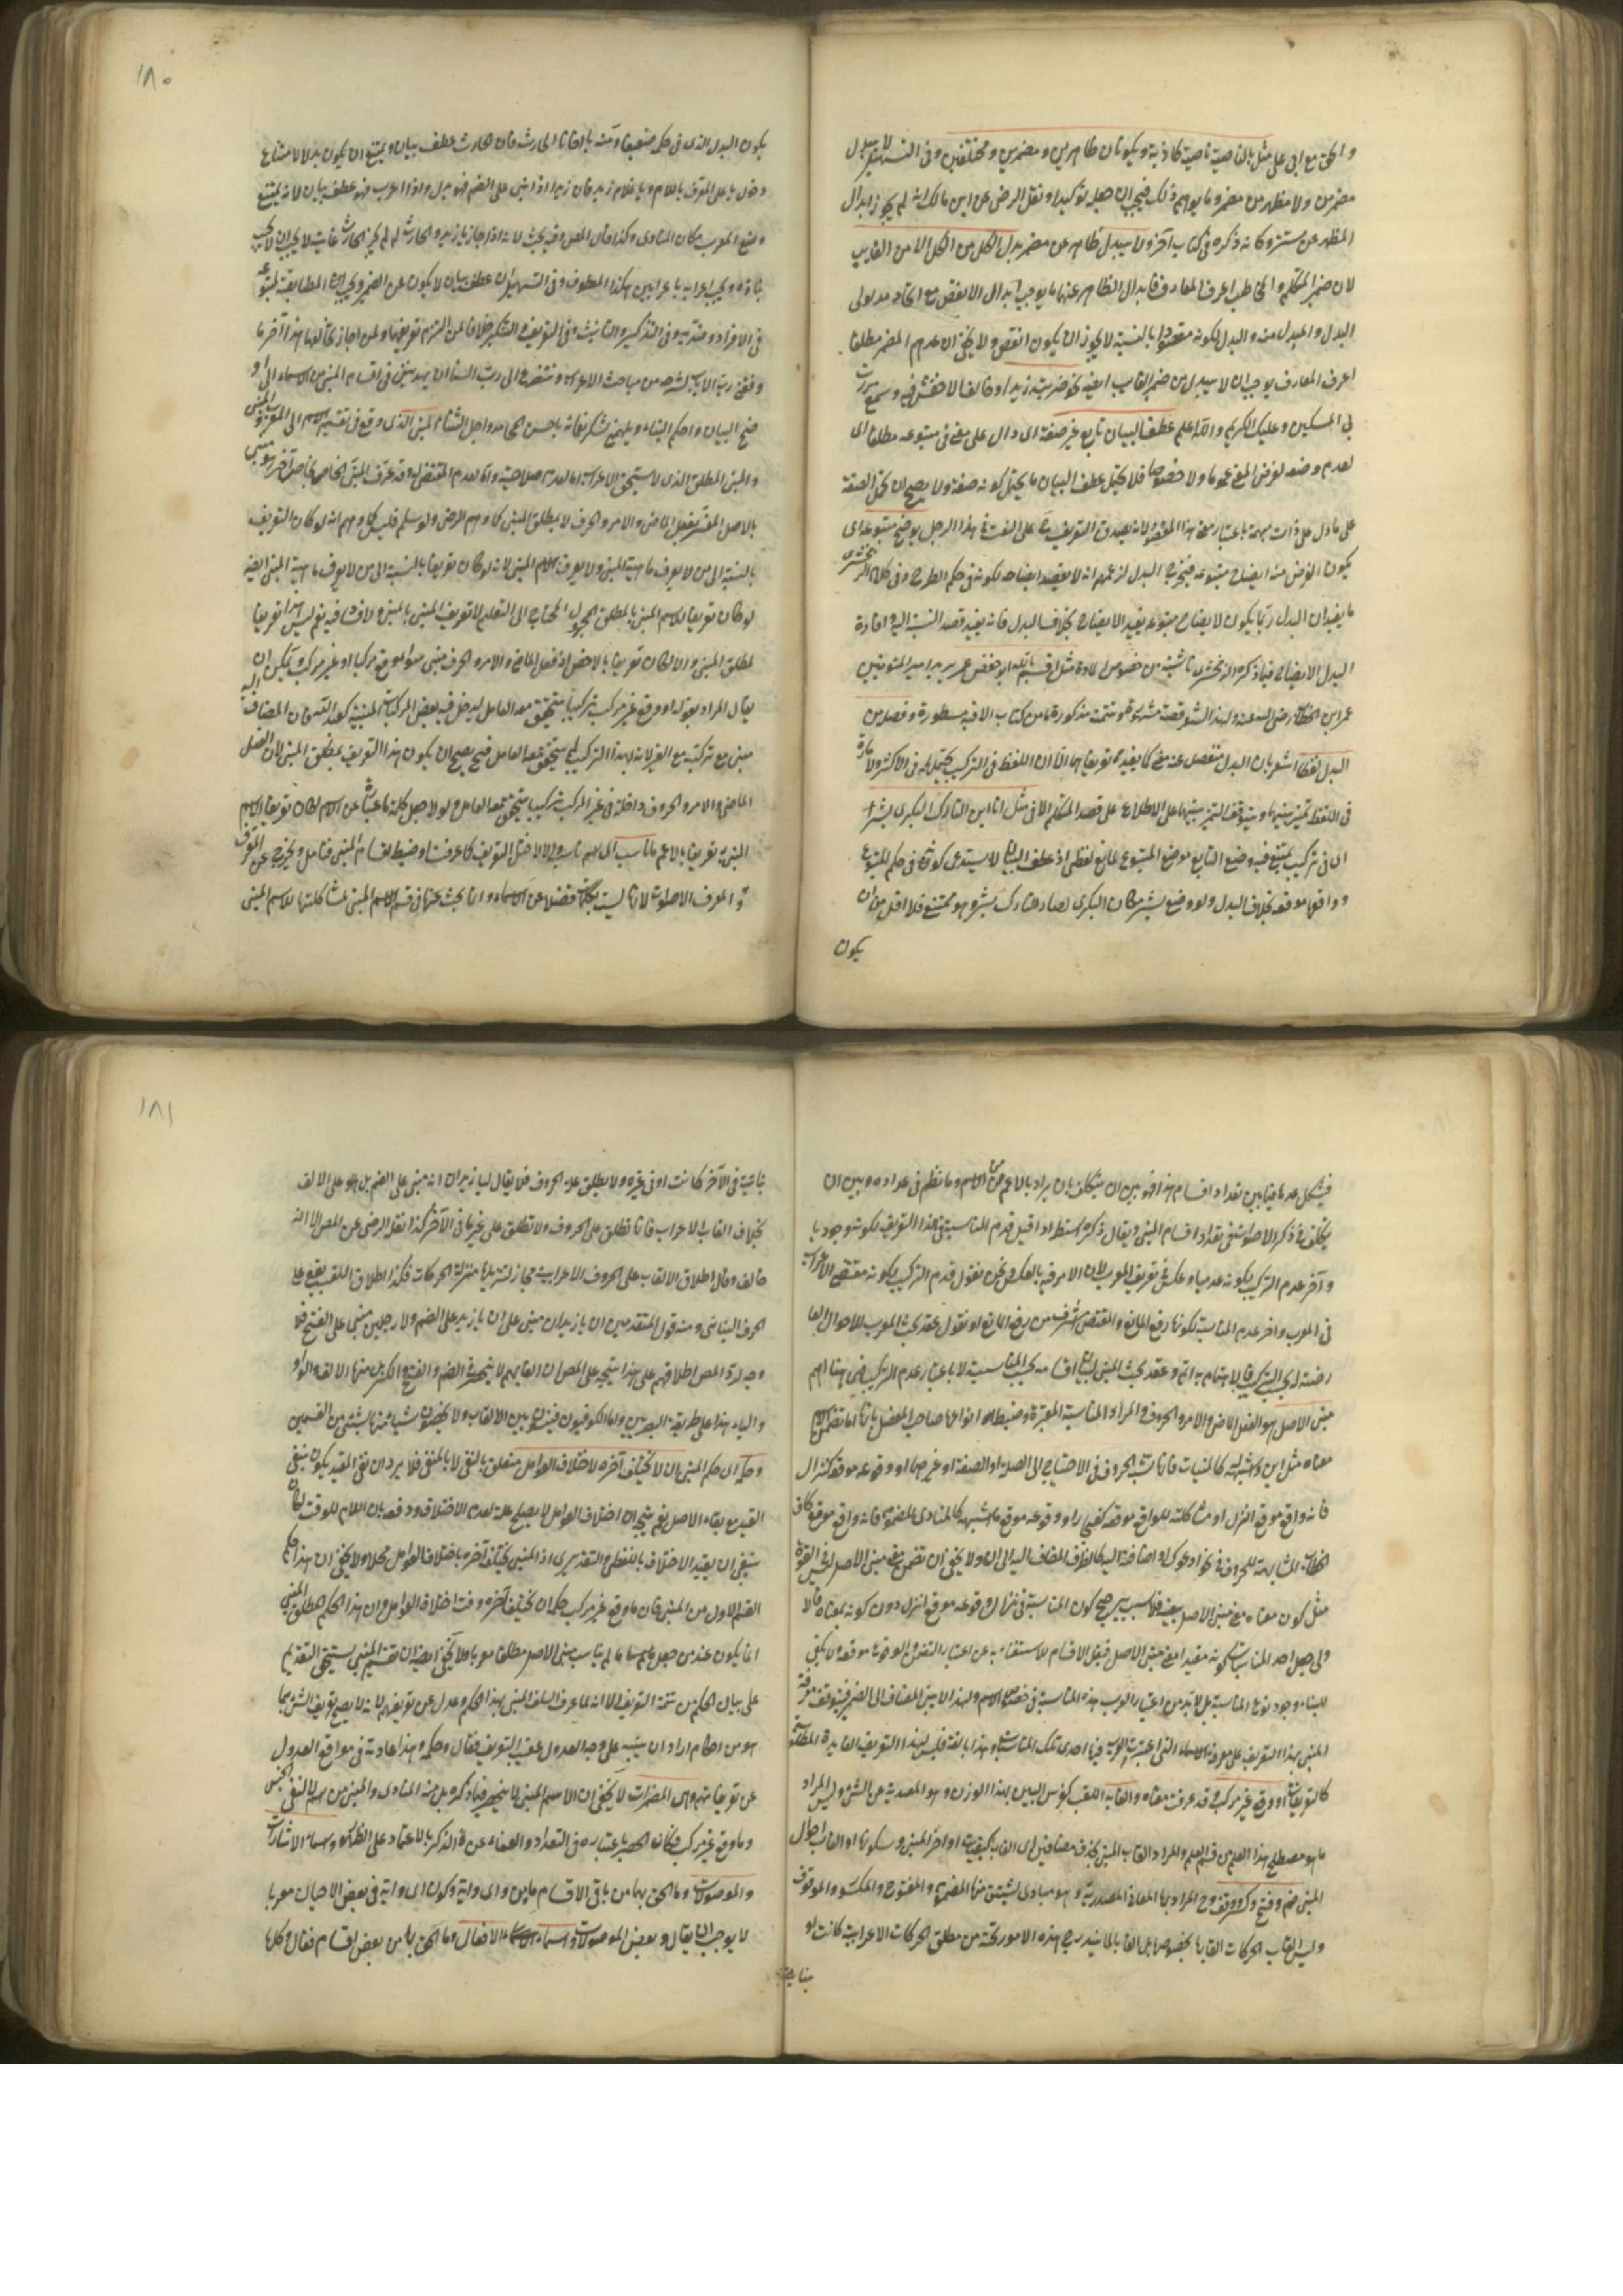 والحق مع ابى على مثل بالناصية ناصية كاذبة ويكونان ظاهرين ومضمرين ومختلفين وفى التسهيل لا يبدل
مضمر من ولا مظهر من مضمر وما يوهم ذلك فيجب ان جعله توكيدا ونقل الرضى عن ابن مالك انه لم يجوز ابدال
المظهر عن وكانه ذكره فى كتاب آخر ولا يبدل ظاهر عن مضمر بدل الكل من الكل الا من الغايب
لان ضمير المتكلم والمخاطب اعرف المعارف فابدال الظاهر عنهما يوجب ابدال الانقص مع اتحاد مدلولى
البدل والمبدل منه والبدل لكونه مقصودا بالنسبة لا يجوز ان يكون انقص ولا يخفى ان عدهم المضمر مطلقا
اعرف المعارف يوجب ان لا يبدل من ضمير الغايب ايضا نحو ضربته زيدا وخالفنا الاخفش فيه وسمع مررت
بى المسكين وعليك الكريم والله اعلم عطف البيان تابع غير صفة اى دال على معنى فى متبوعه مطلقا اى
لعدم وضعه لغرض المعنى عموما ولا خصوصا فلا يحتمل عطف البيان ما يحتمل كونه صفة ولا يصح ان تحمل الصفة
على ما دل على ذات مبهمة باعتبار معنى هذا المقصود لانه يصدق التعريف على النعت فى هذا الرجل يوضح متبوعه اى
يكون الغرض منه ايضاح متبوعه فيخرج البدل لزعمهم انه لا يقصد ايضاحه لكونه فى حكم الطرح وفى كلام الزمخشرى
ما يفيد ان البدل ربما يكون لايضاح متبوعه يفيد الايضاح بخلاف البدل فانه يفيد قصد النسبة اليه وافادة
البدل الايضاح فيما ذكره الزمخشرى ناشية من خصوص المادة مثل اقسم بالله ابو حفص عمر يريد امير المؤمنين
عمر ابن الخطاب رضى الله عنه ولهذا الشعر قصة مشهورة وتتمة مذكورة ما من كتاب الا فيه مسطورة وفصله من
البدل لفظا اشعر بان البدل منفصل عنه معنى كما يفيده تعريفاهما الا ان اللفظ فى التركيب يحتملهما فى الاكثر ولا مارة
فى اللفظ تميز بينهما ويتوقف التميز بينهما على الاطلاع على قصد المتكلم الا فى مثل انا ابن التارك البكرى بشر
اى فى تركيب يمتنع فيه وضع التابع موضع المتبوع لمانع لفظى اذ عطف البيان لا يستدعى كونه فى حكم المتبوع
وواقعا موقعه بخلاف البدل ولو وضع بشر مكان البكرى لصار التارك بشر وهو ممتنع فلا اقل من ان
يكون
١٨٠
يكون البدل الذى فى حكمه ضعيفا ومنه يا اخانا الحارث فان الحارث عطف بيان ويمتنع ان يكون بدلا لامتناع
دخول يا على المعرف باللام ويا غلام زيد فان زيدا اذا بنى على الضم فهو بدل واذا اعرب فهو عطف بيان لانه يمتنع
وضع المعرب مكان المنادى وكذا قال المص وفيه بحث لانه اذا جاز يا زيد والحارث لم لم يجز الحارث غايته لا يجب ان لا يجب
بناؤه ويجب اعرابه باعرابين هكذا المعطوف وفى التسهيل ان عطف بيان لا يكون عن الضمير ويجب ان المطابقة لمتبوعه
فى الافراد وضديه وفى التذكير والتانيث وفى التعريف والتنكير خلافا لمن التزم تعريفهما ولمن اجاز تخالفهما هذا آخر ما
وفقنى رب الارباب لشرحه من مباحث الاعراب ونتضرع الى رب السنا ان يهدينى فى اقسام المبنى من الاسماء الى
ضح البيان واحكم البناء ويلهمنى شكر نعمائه باحسن المحامد واجل الثناء المبنى الذى وقع فى تقسيم الاسم الى المعرب والمبنى
والمبنى المطلق الذى لا يستحق الاعراب اما لعدم صلاحيته واما لعدم المقتضى له وقد عرف المبنى الخاص بما
بالاصل المفسر بفعل الماضى والامر والحرف لا بمطلق المبنى كما وهم الرضى ولو سلم فليس كما وهم انه لو كان التعريف
بالنسبة الى من لا يعرف ماهية المبنى ولا يعرف الاسم المبنى لانه لو كان تعريفا بالنسبة الى من لا يعرف ماهية المبنى ايضا
لو كان تعريفا للاسم المبنى بالمطلق المجهول المحتاج الى التعليم لا تعريف المبنى بالمبنى ولا فساد فيه نعم ليس هذا تعريفا
لمطلق المبنى والا لكان تعريفا بالاخص اذ فعل الماضى والامر والحرف مبنى سواء وقع مركبا او غير مركب ويمكن ان
يقال المراد بقوله او وقع غير مركب تركيبا يتحقق معه العامل ليدخل فيه بعض المركبات المبنية كعبد الله فان المضاف اليه
مبنى مع تركبه مع الغير لانه ليس هذا التركيب يتحقق معه العامل فح يصح ان يكون هذا التعريف لمطلق المبنى لان الفعل
الماضى والامر والحروف داخلة فى غير المركب تركيبا يتحقق معه العامل ولولا جعل كلمة ما عبارة عن الاسم لكان تعريف الاسم
المبنى به تعريفا بالاعم ما ناسب اى اسم ناسب والا لاختل التعريف كما عرفت وضبط اقسام المبنى فتامل ويخرج عن المعرف
والمعرف الاصوات لانها ليست بكلمات فضلا عن الاسماء وانما بحث عنها فى قسم الاسم المبنى لمشاكلتها للاسم المبنى
فيشكل عدها فيما بين تعداد اقسام هذا فهو بين ان يتكلف بان يراد بالاعم من الاسم وما نظم فى عداده وبين ان
يتكلف فى ذكر الاصوات فى تعداد اقسام المبنى ويقال ذكره استطرادا قيل قدم المناسبة فى هذا التعريف لكونه وجوديا
وآخر عدم التركيب لكونه عدميا وعكس فى تعريف المعرب لان الامر فيه بالعكس ونحن نقول قدم التركيب لكونه مقتضى الاعراب
فى المعرب واخر عدم المناسبة لكونها رفع المانع والمقتضى اشرف من رفع المانع او نقول عقد بحث المعرب للاحوال العا
رضة له بحسب التركيب فالاهتمام به اتم وعقد بحث المبنى لبيان اقسامه بحسب المناسبة لا باعتبار عدم التركيب فهى هنا اهم
مبنى الاصل هو الفعل الماضى والامر والحروف والمراد المناسبة المعتبرة وضبط انواعها صاحب المفصل بانها اما تضمن الاسم
معناه مثل اين او شبهه كالمبنيات فانها تشبه الحروف فى الاحتياج الى الصلة او الصفة او غيرهما او وقوعه موقعه كنزال
فانه واقع موقع انزل او مشاكلته للواقع موقعه كفجار او وقوعه موقع ما اشبهه كالمنادى المضموم فانه واقع موقع كاف
الخطاب المشابهة للحروف فى نحو ادعوك او اضافته اليه كالظرف المضاف اليه الى اذ ولا يخفى ان تضمن معنى مبنى الاصل ليس فى القوة
مثل كون معناه معنى مبنى الاصل بعينه فلا سبب يرجح كون المناسبة فى نزال وقوعه موقع انزل دون كونه بمعناه فالا
ولى جعل احد المناسبات كونه مفيدا معنى مبنى الاصل فيقل الاقسام للاستغناء به عن اعتبار التضمن والوقوع موقعه ولا يكفى
للبناء وجود نوع المناسبة بل لا بد من اعتبار العرب هذه المناسبة فى خصوص الاسم ولهذا لا يبنى المضاف الى الضمير فيتوقف معرفة
المبنى بهذا التعريف على معرفة الاسماء التى اعتبرت العرب فيها احدى تلك المناسبات وهذا بالغة فليس لهذا التعريف الفايدة المطلقة
كالتعريفات او وقع غير مركب وقد عرفت معناه والقابه اللقب كونس البين بهذا الوزن وهو المصدرية عن الشى وليس المراد
ما هو مصطلح هذا العلم من قسم العلم والمراد القاب المبنى بحذف مضافين اى القاب كيفيات اواخر المبنى وسكونها او القاب احوال
المبنى ضم وفتح وكسر ووقف وح المراد بها المعانى المصدرية وهو مبادى يشتق منها المضموم والمفتوح والمكسور والموقوف
وليس القاب الحركات القابها بخصوصها بل القابها لما يندرج هذه الامور تحته من مطلق الحركات الاعرابية كانت او
بنائية
١٨١
بنائية فى الآخر كانت او فى غيره ولا يطلق على الحروف فلا يقال ليا زيدان انه مبنى على الضم بل هو على الالف
بخلاف القاب الاعراب فانها تطلق على الحروف ولا تطلق على غيرها فى الآخر كذا نقل الرضى عن المص الا انه
خالف وقال اطلاق الالقاب على الحروف الاعرابية مجاز لتنزيلها منزلة الحركات فكذا اطلاق اللقب يقع على
الحرف البنائى ومنه قول المتقدمين ان يا زيدان مبنى على ان يا زيد على الضم ولا رجلين مبنى على الفتح فلا
وجه لرد المص اطلاقهم على هذا يتجه على المص ان القابهم لا ينحصر فى الضم والفتح والكسر بل منها الالف والواو
والياء هذا على طريقة البصريين واما الكوفيون فيسوون بين الالقاب ولا يخصون شيئا منها بشئ من القسمين
وحكمه اى حكم المبنى ان لا يختلف آخره لاختلاف العوامل متعلق بالنفى لا بالمنفى فلا يرد ان نفى المقيد يكون بنفى
القيد مع بقاء الاصل نعم يتجه ان اختلاف العوامل لا يصلح علة لعدم الاختلاف ودفعه بان اللام للوقت كان
ينبغى ان يقيد الاختلاف باللفظى والتقديرى اذ المبنى يختلف آخره باختلاف العوامل محلا ولا يخفى ان هذا حكم
القسم الاول من المبنى فان ما وقع غير مركب حكمه ان يختلف آخره وقت اختلاف العوامل وان هذا الحكم لمطلق المبنى
انما يكون عند من جعل ما لم يناسب مبنى الاصل مطلقا معربا ولا يخفى ايضا ان تقسيم المبنى يستحق التقديم
على بيان الحكم من تتمة التعريف الا انه لما عرف السلف المبنى بهذا الحكم وعدل عن تعريفهم لانه لا يصح تعريف الشئ بما
هو من احكامه اراد ان ينبه على وجه العدول عقيب التعريف فقال وحكمه وهذا عادته فى مواقع العدول
عن تعريفاتهم وهى المضمرات لا يخفى ان الاسم المبنى لا ينحصر فيما ذكره بل منه المنادى والمبنى من اسم لا لنفى الجنس
وما وقع غير مركب فكانه الحصر باعتباره فى التعداد والعفاء عن الذكر بالاعتماد على الظهور واسماء الاشارات
والموصولات وما الحق بها من باقى الاقسام ماين واى واية وكون اى واية فى بعض الاحيان معربا
لا يوجب ان يقال وبعض الموصولات واسماء الافعال وما الحق بها من بعض اقسام فعال وكلها